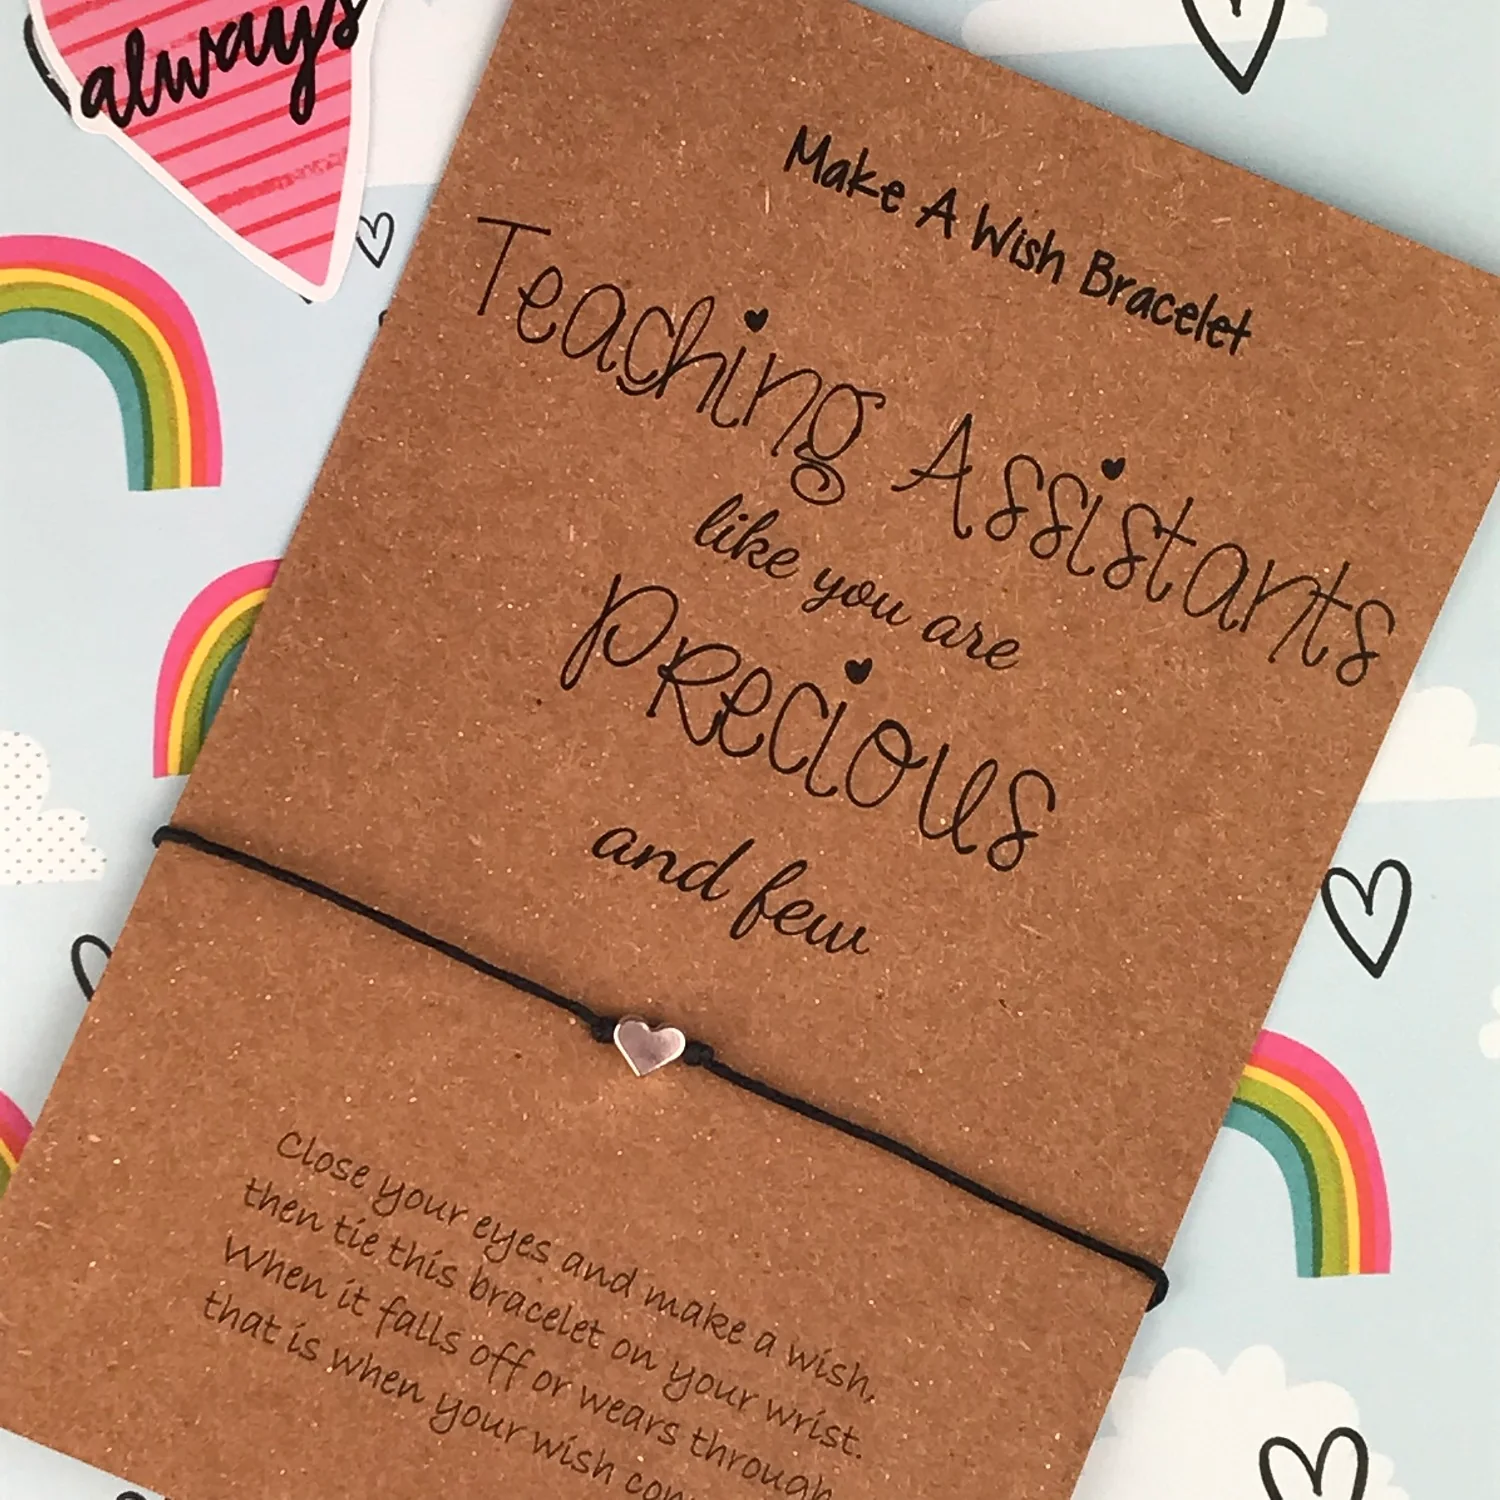 always
Make A Wish Bracelet
Teaching Assistants
like you are
PRECIOUS
and few
Close your eyes and make a wish,
then tie this bracelet on your wrist.
When it falls off or wears through
that is when your wish